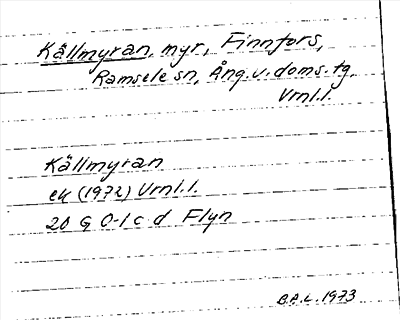 Källmyran, myr, Finnfors,
Ramsele sn, Ång.v. doms. tg.
Vrnl.l.
Källmyran
ek (1972) Vrnl.l.
20 G 0-1 c d Flyn
B.A.L. 1973